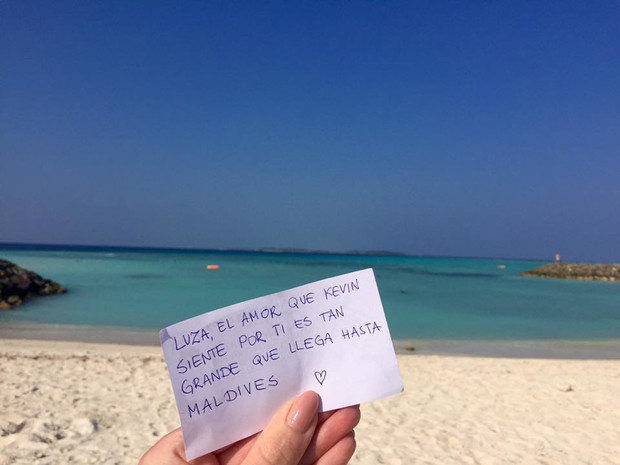 LUZA, EL AMOR QUE KEVIN
SIENTE POR TI ES TAN
GRANDE QUE LLEGA HASTA
MALDIVES ♡